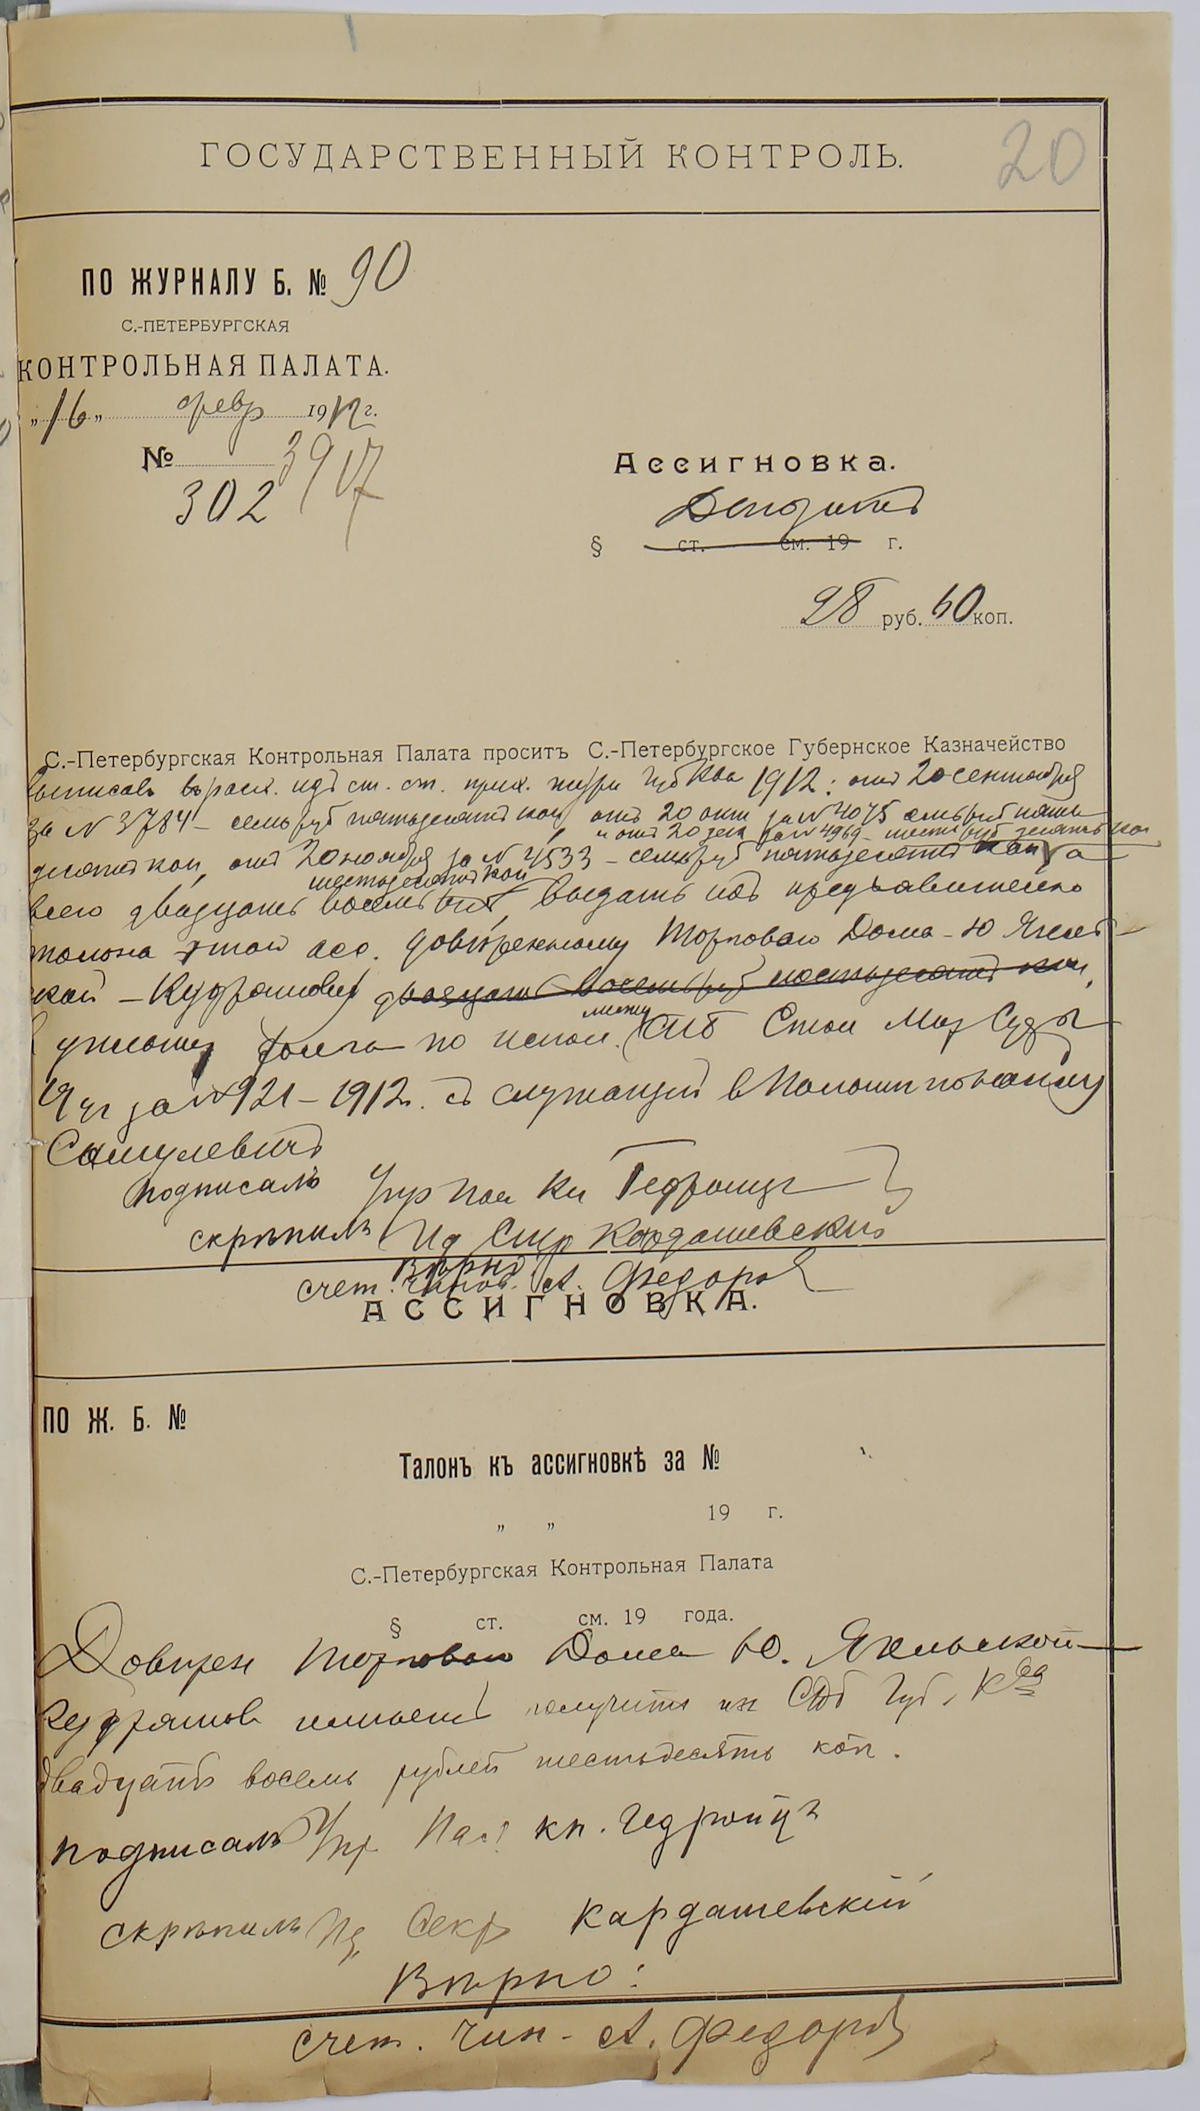 20
ГОСУДАРСТВЕННЫЙ КОНТРОЛЬ.
ПО ЖУРНАЛУ Б. № 90
С.-ПЕТЕРБУРГСКАЯ
КОНТРОЛЬНАЯ ПАЛАТА.
„16„ февр 1912 г.
№ 3917
302
Ассигновка.
Депозитъ
§ ст. см. 19 г.
28 руб. 60 коп.
С.-Петербургская Контрольная Палата проситъ С.-Петербургское Губернское Казначейство
1912: отъ 20 сентября
за N 3784 – семь руб пятьдесятъ коп, отъ 20 окт за N 4075 семь руб пять
и отъ 20 дек за N 4969 – шесть руб десять коп
десятъ коп, отъ 20 ноября за N 4533 – семь руб пятьдесятъ коп, а
шестьдесятъ коп
всего двадцать восемь руб, выдать подъ предъявителемъ
талона этой асс. довѣренному Торговаго Дома – Ю Яхель
ской – Кудряшову двадцать восемь руб шестьдесятъ коп,
долга по испол. СПБ Стол Мир Судьи
19 уч за N 921 – 1912г. съ служащий в
Самулевичъ
подписалъ Упр Пал Кн Гедройцъ
скрѣпилъ Ид Секр Кардашевский
Вѣрно:
счет. чинов. А. Федоровъ
АССИГНОВКА.
ПО Ж. Б. №
Талонъ къ ассигновкѣ за №
„ „ 19 г.
С.-Петербургская Контрольная Палата
§ ст. см. 19 года.
Довѣрен Торговаго Дома Ю. Яхельской –
Кудряшов имѣетъ получить из СПб Губ. Ква
двадцать восемь рублей шестьдесятъ коп.
подписалъ Упр Пал: кн. Гедройцъ
скрѣпилъ Ид Секр Кардашевскій
Вѣрно:
счет. чин – А. Федоровъ